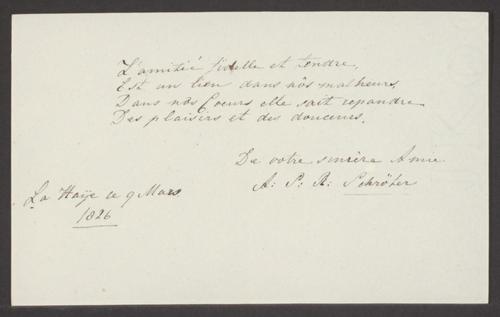 L'amitié fidelle et tendre,
Est un lien dans nôs malheurs,
Dans nos Coeurs elle sait repandre
Des plaisirs et des douceurs.
De votre sincère Amie
A: P: A: Schröter
La Haÿe ce 9 Mars
1826